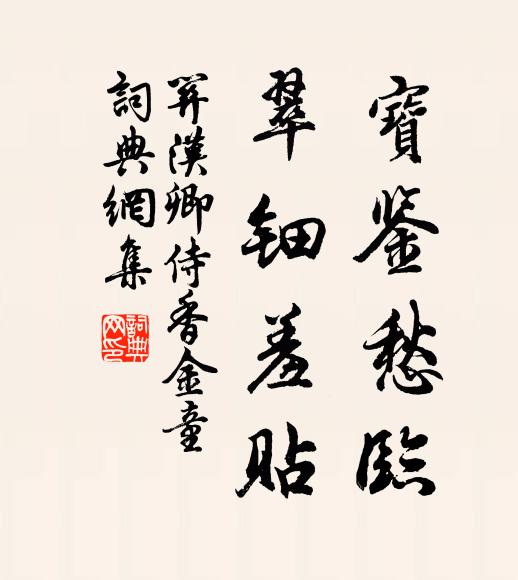 寶鉴愁臨
翠钿羞貼
関漢卿侍香金童
詞典網集
詞典网印